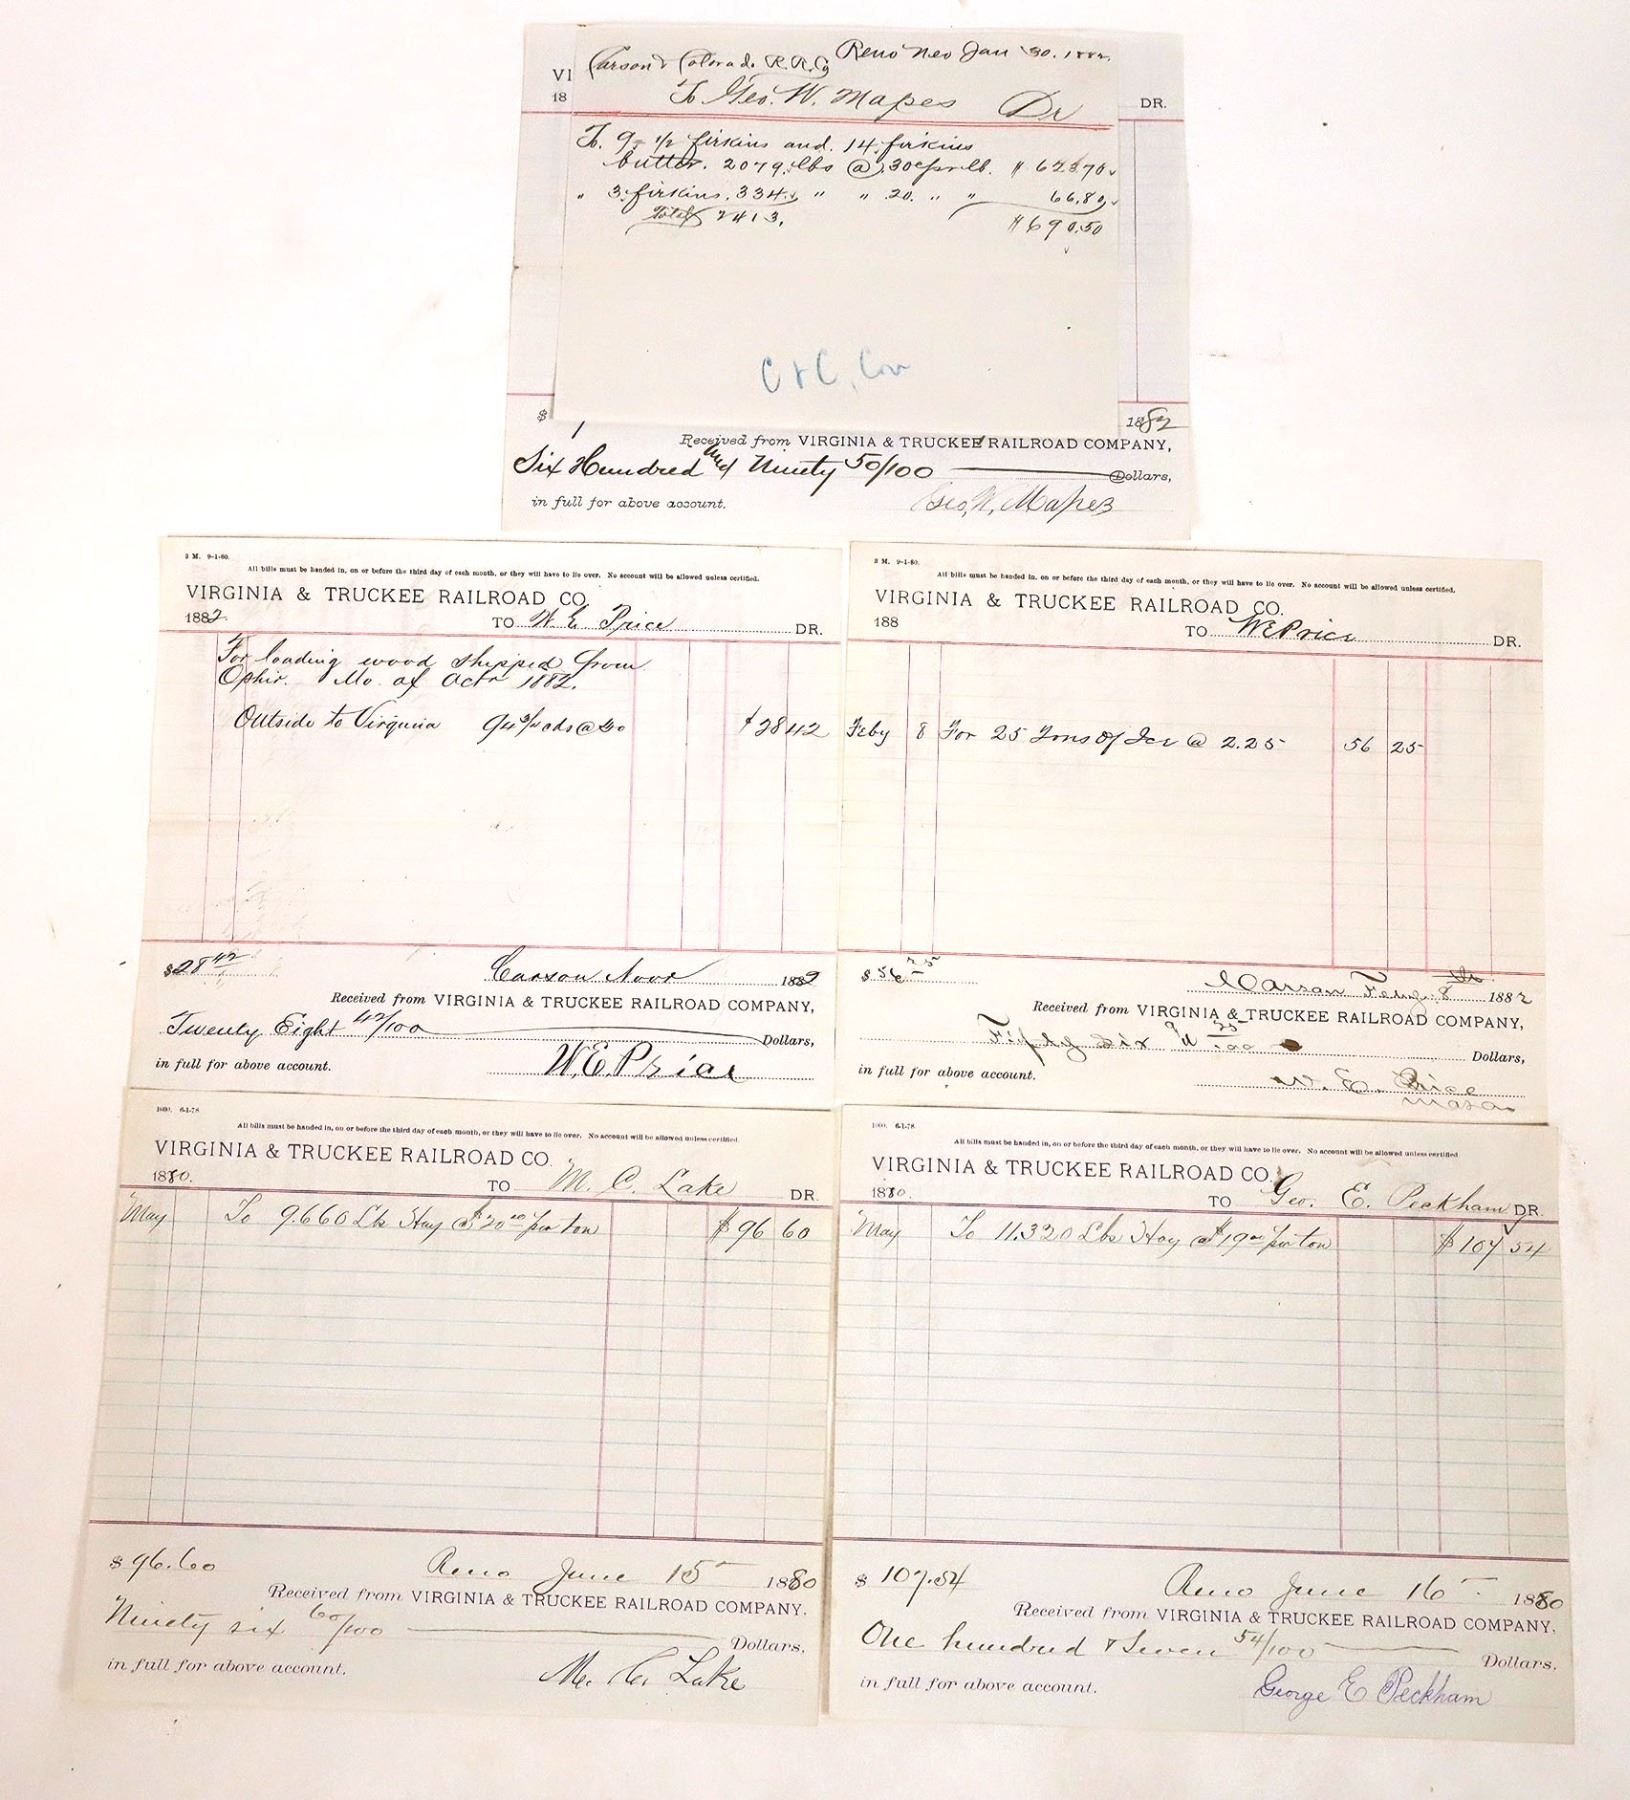 Carson & Colorado R.R. Co Reno Nev Jan 30. 1882
VI
18 To Geo. W. Mapes Dr DR.
To 9- 1/2 firkins and 14 firkins
butter. 2079 lbs @ 30c pr lb. $ 623.70
" 3 firkins. 334 " " 20. " " 66.80
Total 2413. $690.50
C & C, Cov
$ 1882
Received from VIRGINIA & TRUCKEE RAILROAD COMPANY,
Six Hundred and Ninety 50/100 Dollars,
in full for above account. Geo. W. Mapes
2 M. 9-1-80.
All bills must be handed in, on or before the third day of each month, or they will have to lie over. No account will be allowed unless certified.
VIRGINIA & TRUCKEE RAILROAD CO.
1882 TO W. E. Price DR.
For loading wood shipped from
Ophir. Mo. of Octr 1882.
Outside to Virginia 94 3/4 cds @ 30 $28 42
$28 42 Carson Novr 1882
Received from VIRGINIA & TRUCKEE RAILROAD COMPANY,
Twenty Eight 42/100 Dollars,
in full for above account. W. E. Price
2 M. 9-1-80.
All bills must be handed in, on or before the third day of each month, or they will have to lie over. No account will be allowed unless certified.
VIRGINIA & TRUCKEE RAILROAD CO.
188 TO W E Price DR.
Feby 8 For 25 Tons Of Ice @ 2.25 56 25
$56 25 Carson Feby. 8th 1882
Received from VIRGINIA & TRUCKEE RAILROAD COMPANY,
Fifty six & 25/100 Dollars,
in full for above account. W. E. Price
1000. 6-1-78
All bills must be handed in, on or before the third day of each month, or they will have to lie over. No account will be allowed unless certified.
VIRGINIA & TRUCKEE RAILROAD CO.
1880. TO M. C. Lake DR.
May To 9.660 Lbs Hay @ $20 00 per ton $96 60
$96.60 Reno June 15 1880
Received from VIRGINIA & TRUCKEE RAILROAD COMPANY,
Ninety six 60/100 Dollars,
in full for above account. M. C. Lake
1000. 6-1-78
All bills must be handed in, on or before the third day of each month, or they will have to lie over. No account will be allowed unless certified
VIRGINIA & TRUCKEE RAILROAD CO.
1880. TO Geo. E. Peckham DR.
May To 11.320 Lbs Hay @ $19 00 per ton $107 54
$107.54 Reno June 16 1880
Received from VIRGINIA & TRUCKEE RAILROAD COMPANY,
One hundred & Seven 54/100 Dollars,
in full for above account. George E Peckham